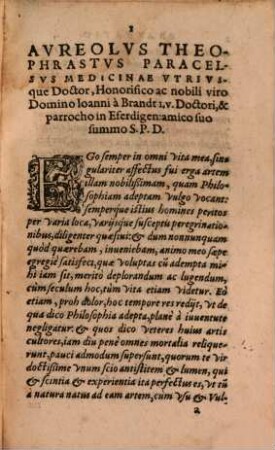 1
AVREOLVS THEO-
PHRASTVS PARACEL-
SVS MEDICINAE VTRIVS-
que Doctor, Honorifico ac nobili viro
Domino Ioanni à Brandt I.V. Doctori, &
parrocho in Eserdigen: amico suo
summo S. P. D.
EGo semper in omni vita mea, sin
gulariter affectus fui erga artem
illam nobilissimam, quam Philo-
sophiam adeptam vulgo vocant:
semperque istius homines peritos
per varia loca, varijsque susceptis peregrinatio-
nibus, diligenter quæsiui: & cum nonnunquam
quod quærebam, inueniebam, animo meo sæpe
egregiè satisfeci, quæ voluptas cũ adempta mi-
hi iam sit, merito deplorandum ac lugendum,
cùm seculum hoc, tùm vita etiam videtur. Eò
etiam, proh dolor, hoc tempore res redijt, vt de
qua dico Philosophia adepta, planè à iuuentute
negligatur: & quos dico veteres huius artis
cultores, iam diu penè omnes mortalia relique-
runt, pauci admodum supersunt, quorum te vir
doctissime vnum scio antistitem & lumen, qui
& scientia & experientia ita perfectus es, vt tũ
à natura natus ad eam artem, cum vsu & vul-
2